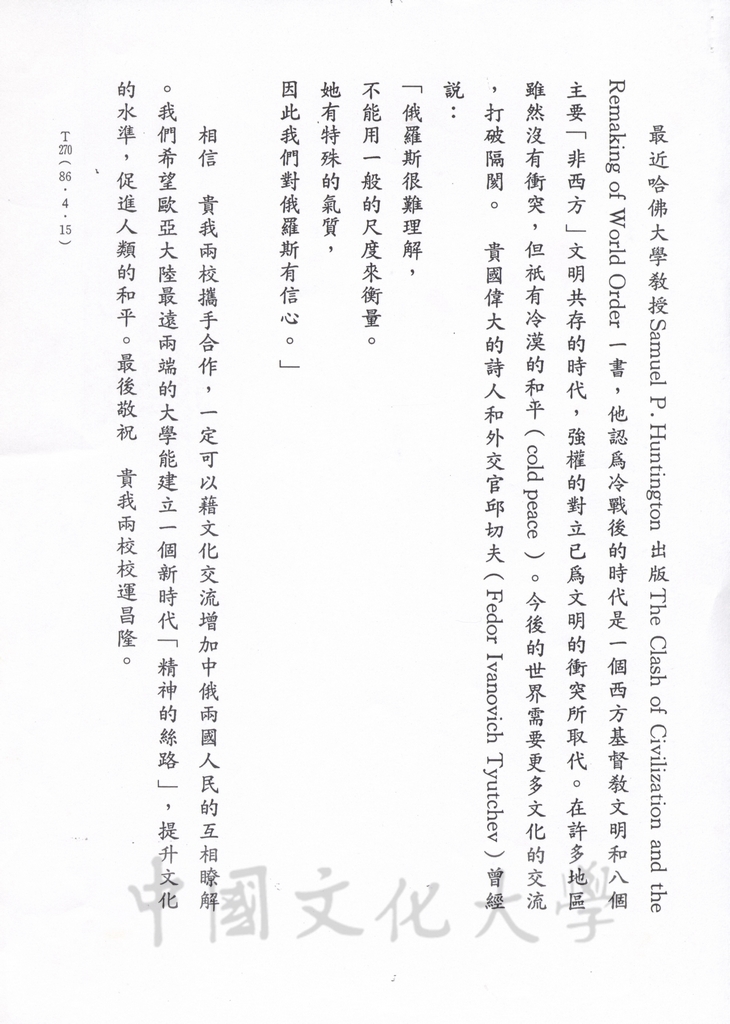 最近哈佛大學教授Samuel P. Huntington 出版The Clash of Civilization and the
Remaking of World Order 一書，他認爲冷戰後的時代是一個西方基督教文明和八個
主要「非西方」文明共存的時代，強權的對立已爲文明的衝突所取代。在許多地區
雖然沒有衝突，但祇有冷漠的和平（cold peace）。今後的世界需要更多文化的交流
，打破隔閡。 貴國偉大的詩人和外交官邱切夫（Fedor Ivanovich Tyutchev）曾經
説：
「俄羅斯很難理解，
不能用一般的尺度來衡量。
她有特殊的氣質，
因此我們對俄羅斯有信心。」
相信 貴我兩校攜手合作，一定可以藉文化交流增加中俄兩國人民的互相瞭解
。我們希望歐亞大陸最遠兩端的大學能建立一個新時代「精神的絲路」，提升文化
的水準，促進人類的和平。最後敬祝 貴我兩校校運昌隆。
T270（86．4．15）
中國文化大學